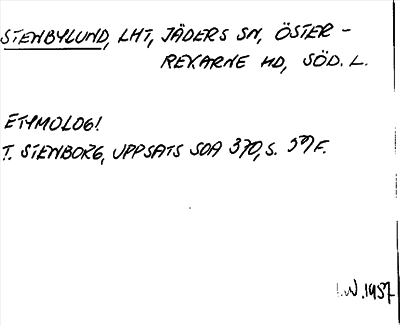 STENBYLUND, LHT, JÄDERS SN, ÖSTER-
REKARNE HD, SÖD. L.
ETYMOLOGI
T. STENBORG, UPPSATS SOA 370, S. 59 F.
I.W. 1957